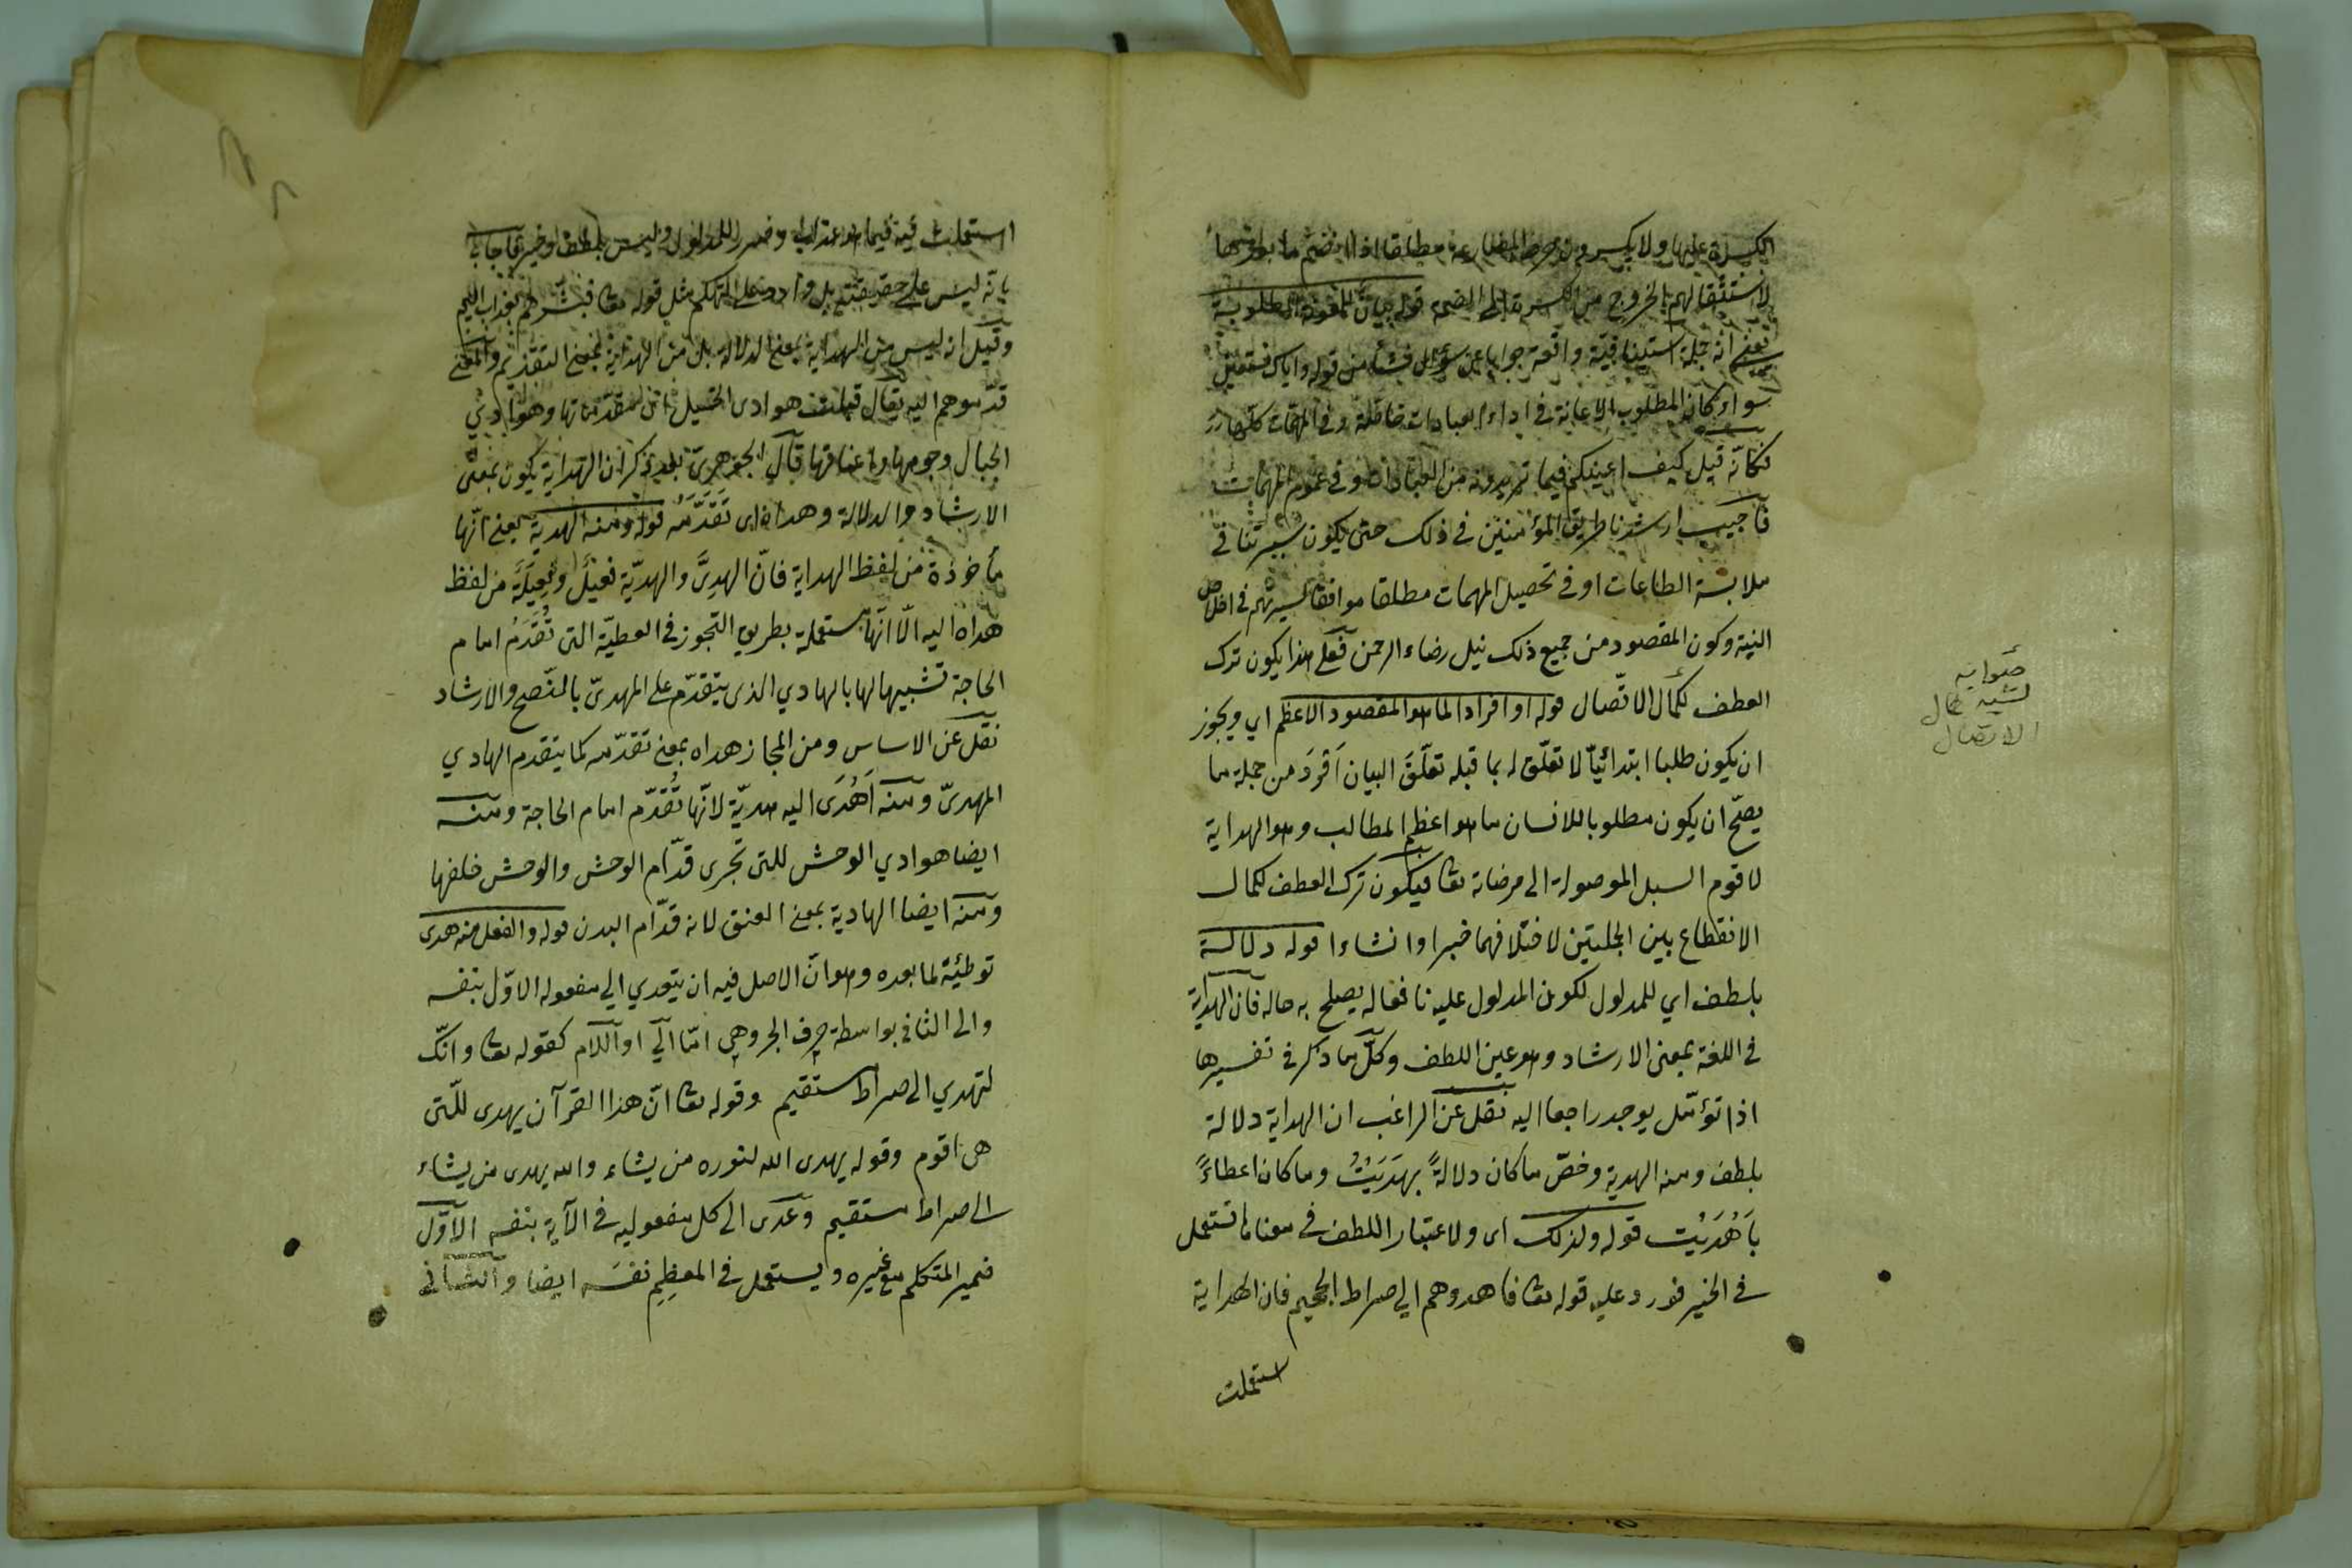 الكسرة عليها ولا يكسرون حرف المضارعة مطلقا اذا انضم ما بعدها
لاستثقالهم الخروج من الكسرة الى الضمة قوله بيان للمعونة المطلوبة
يعني انه جملة استينافية واقعة جوابا عن سؤال نشأ من قوله واياك نستعين
سواء كان المطلوب الاعانة في اداء العبادات خاصة او في المهمات كلها
فكانّه قيل كيف اعينكم فيما تريدونه من العبادات او في عموم المهمات
فاجيب ارشدنا طريق المؤمنين في ذلك حتى يكون سيرتنا في
ملابسة الطاعات او في تحصيل المهمات مطلقا موافقا لسيرتهم في اخلاص
النية وكون المقصود من جميع ذلك نيل رضاء الرحمن فعلى هذا يكون ترك
العطف لكمال الاتّصال قوله او افراد لما هو المقصود الاعظم اي ويجوز
ان يكون طلبا ابتدائيّا لا تعلّق له بما قبله تعلّقَ البيان اَفْرَدَ من جملة ما
يصحّ ان يكون مطلوبا للانسان ما هو اعظم المطالب وهو الهداية
لاقوم السبل الموصولة الى مرضاته تعا فيكون ترك العطف لكمال
الانقطاع بين الجملتين لاختلافهما خبرا وانشاءا قوله دلالة
بلطف اي للمدلول لكون المدلول عليه نافعا له يصلح به حاله فان الهداية
في اللغة بمعنى الارشاد وهو عين اللطف وكلّ ما ذكر في تفسيرها
اذا تؤمّل يوجد راجعا اليه نقل عن الراغب ان الهداية دلالة
بلطف ومنه الهدية وخصّ ما كان دلالةً بهَدَيْتُ وما كان اعطاءً
باَهْدَيْت قوله ولذلك اى ولاعتبار اللطف في معناها تستعمل
في الخير فورد عليه قوله تعا فاهدوهم الي صراط الجحيم فان الهداية
استعملت
صوابه
لشبه كمال
الاتصال
استعملت فيه فيما هو عذاب وضرر للمدلول وليس بلطف وخير فاجاب
بانّه ليس على حقيقته بل وارد على التهكم مثل قوله تعا فبشّرهم بعذاب اليم
وقيل انه ليس من الهداية بمعنى الدلالة بل من الهداية بمعنى التقديم والمعنى
قدّموهم اليه يقال هوادى الخيل اى لمقدّماتها وهوادي
الجبال وجوهها واعناقها قال الجوهريّ بعد ذكر ان الهداية يكون بمعنى
الارشاد والدلالة وهداه اى تَقَدَّمَه قوله ومنه الهدية يعني انّها
مأخوذة من لفظ الهداية فانّ الهديَّ والهديّة فعيلٌ وفعيلةٌ من لفظ
هداه اليه الّا انّها مستعملة بطريق التجوز في العطيّة التى تُقدَمُ امام
الحاجة تشبيها لها بالهادي الذى يتقدّم على المهدىّ بالنّصح والارشاد
نقل عن الاساس ومن المجاز هداه بمعنى تقدّمه كما يتقدم الهادي
المهدىّ ومنه اَهْدَى اليه هديّة لانّها تُقدّم امام الحاجة ومنه
ايضا هوادي الوحش للتى تجرى قدّام الوحش والوحش خلفها
ومنه ايضا الهادية بمعنى العنق لانه قدّام البدن قوله والفعل منه هدى
توطئة لما بعده وهو انّ الاصل فيه ان يتعدي الي مفعوله الاوّل بنفسه
والى الثاني بواسطة حرف الجر وهي امّا الي او اللام كقوله تعا وانّك
لتهدي الى صراط مستقيم وقوله تعا انّ هذا القرآن يهدى للّتى
هى اقوم وقوله يهدى الله لنوره من يشاء والله يهدى من يشاء
الى صراط مستقيم وعدى الى كل مفعوليه في الآية بنفسه الاوّل
ضمير المتكلم مع غيره ويستعمل في المعظِم نفسَه ايضا والثاني